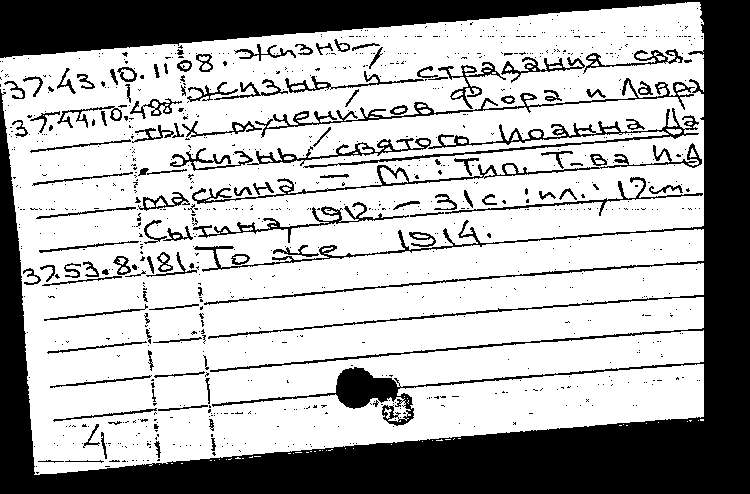 37.43.10.1108. Жизнь
37.44.10.488. Жизнь и страдания свя-
тых мучеников Флора и Лавра
. Жизнь святого Иоанна Да-
маскина. – М. : Тип. Т-ва И.Д.
Сытина, 1912. – 31с. : ил.; 17см.
37.53.8.181. То же. 1914.
4